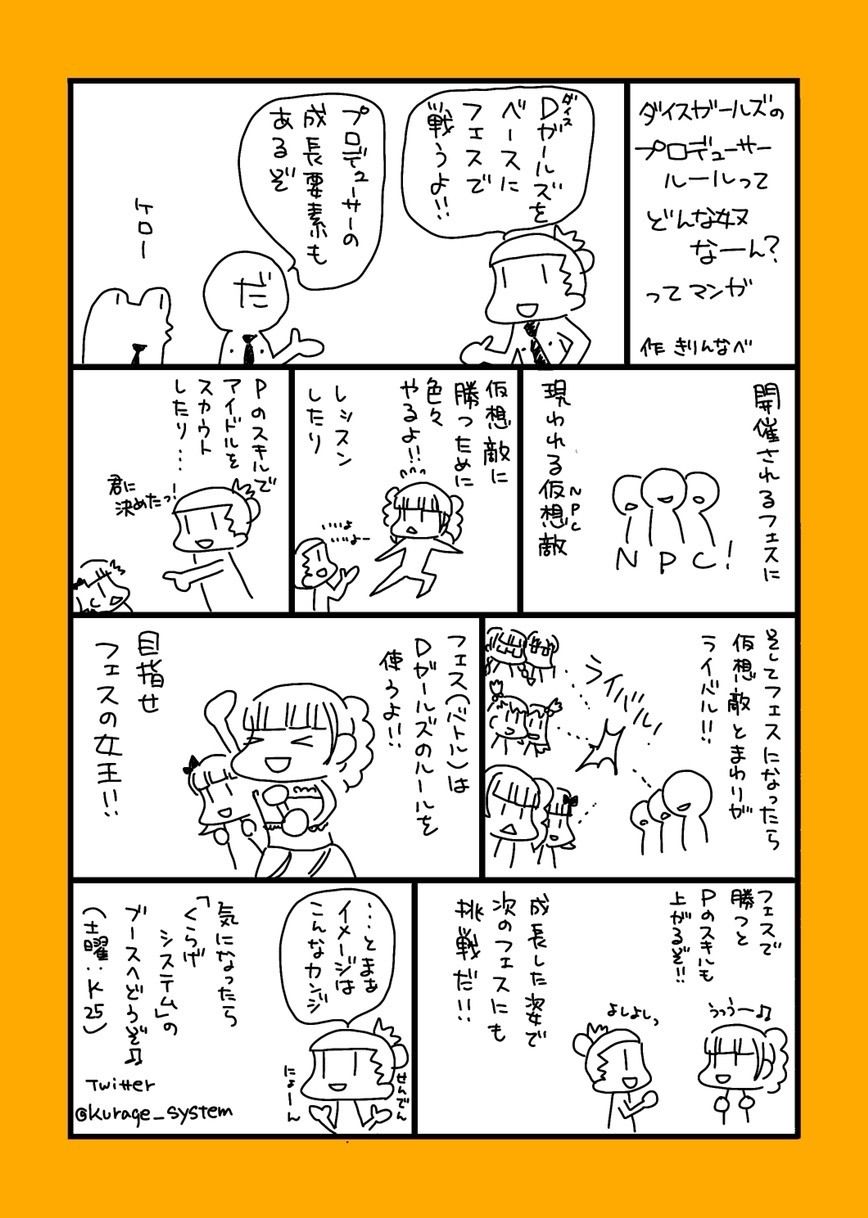 ダイスガールズの
プロデューサー
ルールって
どんな奴
なーん?
ってマンガ
作 きりんなべ
Dガールズを
ダイス
ベースに
フェスで
戦うよ!!
プロデューサーの
成長要素も
あるぞ
だ
ケロー
開催されるフェスに
現われる仮想敵
NPC
NPC!
仮想敵に
勝つために
色々
やるよ!!
レッスン
したり
いいよ
いいよー
Pのスキルで
アイドルを
スカウト
したり…
君に
決めたっ!
そしてフェスになったら
仮想敵とまわりが
ライバル!!
ライバル!
フェス(バトル)は
Dガールズのルールを
使うよ!!
目指せ
フェスの女王!!
フェスで
勝つと
Pのスキルも
上がるぞ!!
うっうー♫
よしよしっ
成長した姿で
次のフェスにも
挑戦だ!!
…とまぁ
イメージは
こんなカンジ
せんでん
にょーん
気になったら
「くらげ
システム」の
ブースへどうぞ♫
(土曜:K25)
Twitter
@kurage_system